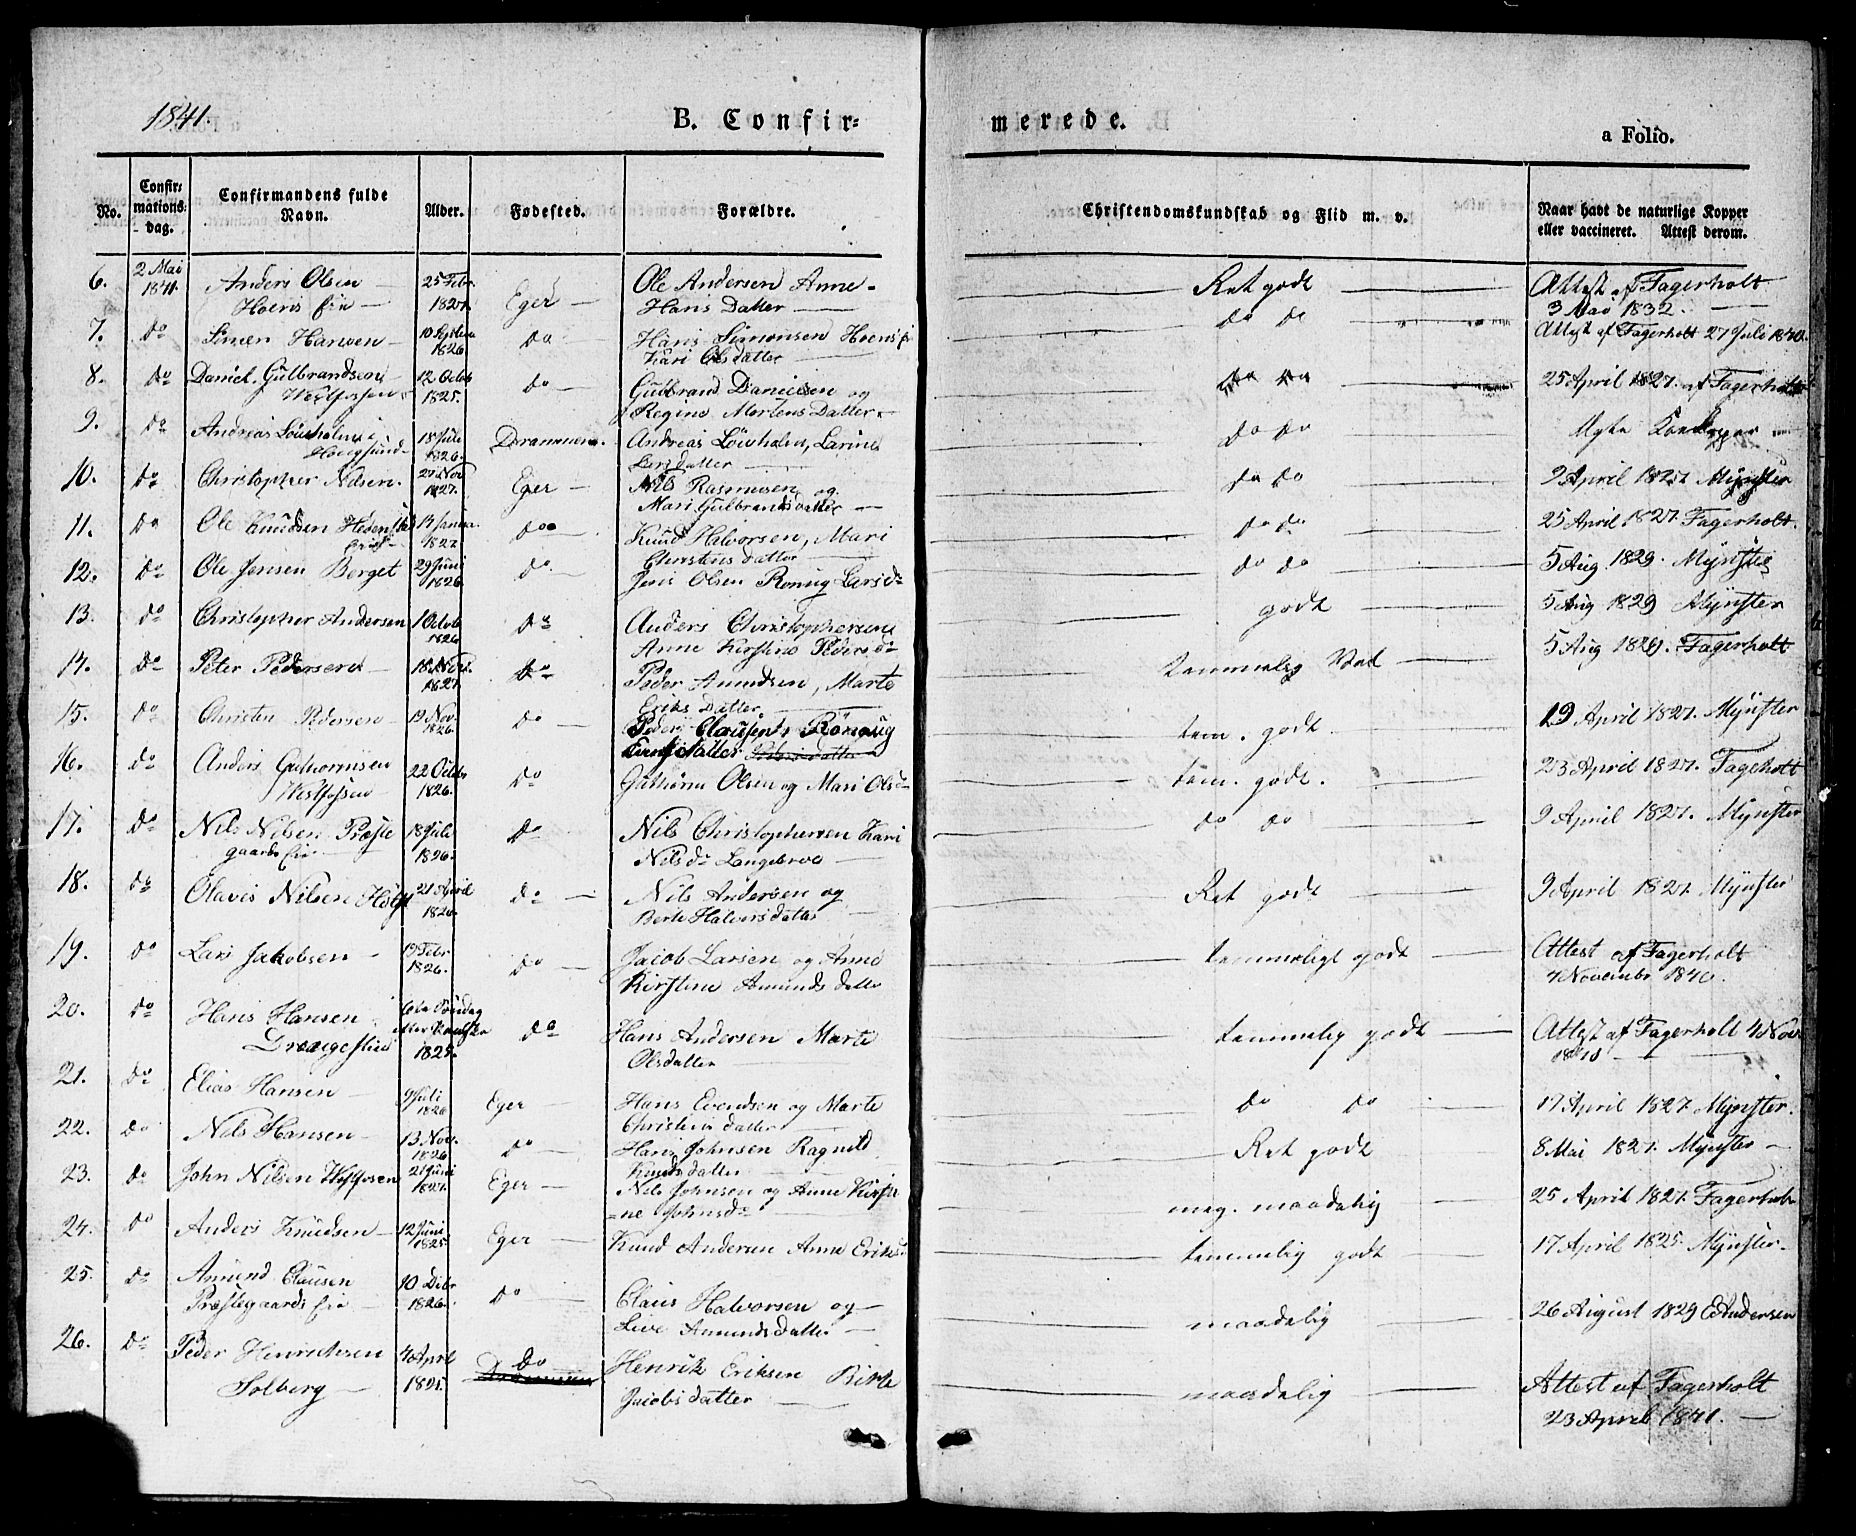 1841.
B. Confir=
merede.
a Folio.
No.
Confir=
mations=
dag.
Confirmandens fulde
Navn.
Alder.
Fødested.
Forældre.
Christendomskundskab og Flid m. v.
Naar havt de naturlige Kopper
eller vaccineret. Attest derom.
6. 2 Mai 1841. Anders Olsen 25 Febr. 1827. Eger Ole Andersen Anne Ret godt Attest af Fagerholt
Hoens Eie Hans Datter 3 Mai 1832.
7. Do Simen Hansen 10 1826 Do Hans Simonsen Hoens Do Do Attest af Fagerholt 27 Juli 1840.
Kari Olsdatter
8. Do Daniel Gulbrandsen 12 Octob 1825. Do Gulbrand Danielsen og Do Do 25 April 1827. af Fagerholt
Vestfossen Regine Mortens Datter
9. Do Andreas Løvholm 18 Juli 1826. Drammen. Andreas Løvholm, Larine Do Do
Hougsund Larsdatter
10. Do Christopher Nilsen. 27 Nov 1827. Eger Nils Rasmusen og Do Do 9 April 1827 Mÿnster
Mari Gulbrandsdatter
11. Do Ole Knudsen 1827 Do Knud Halvorsen, Mari Do Do 25 April 1827. Fagerholt.
Christens datter
12. Do Ole Jensen Berget 29 Juni 1826. Do Jens Olsen Ronnug Larsd Do Do 5 Aug. 1829. Mÿnster
13. Do Christopher Andersen 1 Octob 1826 Do Anders Christophersen godt 5 Aug 1829 Mÿnster
Anne Kirstine Peders D
14. Do Peter Pedersen 18 Nov. 1827. Do Peder Amundsen, Marte temmelig godt 5 Aug 1829. Fagerholt
Eriks Datter
15. Do Christen Pedersen 19 Nov. 1826. Do Peder Clausen, Rönnug tem. godt 19 April 1827. Mÿnster
16. Do Anders Guthormsen 22 Octob 1826. Do Guthorm Olsen og Mari Olsd tem. godt. 23 April 1827. Fagerholt
Vestfossen
17. Do Nils Nilsen Præste 18 Juli 1826. Do Nils Christophersen Kari Do Do 9 April 1827. Mÿnster
gaards Eie Nilsd Langebroe
18. Do Olaves Nilsen 21 April 1826. Do Nils Andersen og Ret godt 9 April 1827. Mÿnster
Berte Halvorsdatter
19. Do Lars Jakobsen 19 Febr 1826. Do Jacob Larsen og Anne temmeligt godt Attest af Fagerholt
Kirstine Amunds datter 4 Novembr. 1840.
20. Do Hans Hansen 6te Söndag efter 1825. Do Hans Andersen Marte temmelig godt Attest af Fagerholt 4 Nov.
Olsdatter 1840
21. Do Elias Hansen 9 Juli 1826 Eger Hans Evendsen og Marte Do Do 17 April 1827. Mÿnster.
Christens datter
22. Do Nils Hansen 13 Nov. 1826 Do Hans Johnsen Ragnild Ret godt 8 Mai 1827. Mÿnster
Knuds datter
23. Do John Nilsen Vestfossen 21 Juni 1827. Eger Nils Johnsen og Anne Kirsti meg. maadelig 25 April 1827. Fagerholt
=ne Johnsd
24. Do Anders Knudsen 12 Juni 1825. Eger Knud Andersen Anne Eriksd temmelig godt 17 April 1825. Mÿnster.
25. Do Amund Clausen 10 Debr 1826. Do Claus Halvorsen og maadelig 26 August 1829 E Andersen
Præstegaards Eie Live Amunds datter
26. Do Peder Henrichsen 4 April 1825. Do Henrik Eriksen Birte maadelig Attest af Fagerholt
Solberg Jacobsdatter 23 April 1841.